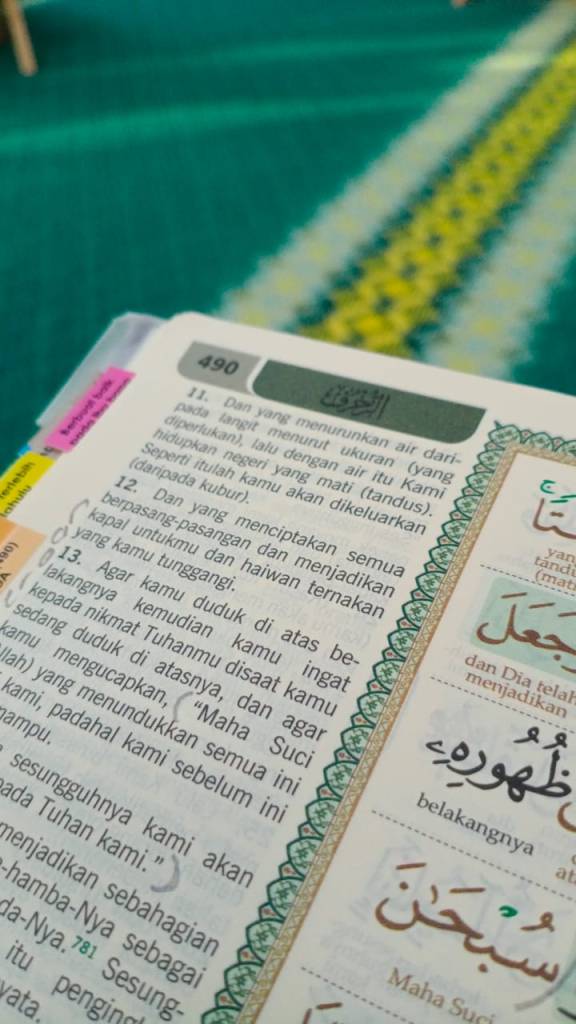 490
الزخرف
11. Dan yang menurunkan air dari-
pada langit menurut ukuran (yang
diperlukan), lalu dengan air itu Kami
hidupkan negeri yang mati (tandus).
Seperti itulah kamu akan dikeluarkan
(daripada kubur).
12. Dan yang menciptakan semua
berpasang-pasangan dan menjadikan
kapal untukmu dan haiwan ternakan
yang kamu tunggangi.
13. Agar kamu duduk di atas be-
lakangnya kemudian kamu ingat
kepada nikmat Tuhanmu disaat kamu
sedang duduk di atasnya, dan agar
kamu mengucapkan, “Maha Suci
llah) yang menundukkan semua ini
kami, padahal kami sebelum ini
mampu.
sesungguhnya kami akan
pada Tuhan kami.”
menjadikan sebahagian
-hamba-Nya sebagai
da-Nya.781 Sesung-
itu pengingk
yata.
Berbuat baik
terlebih
dahulu
490)
yan
tandu
(mati
جَعَلَ
dan Dia telah
menjadikan
ظُهُورِهِۦ
belakangnya
سُبْحَٰنَ
Maha Suci